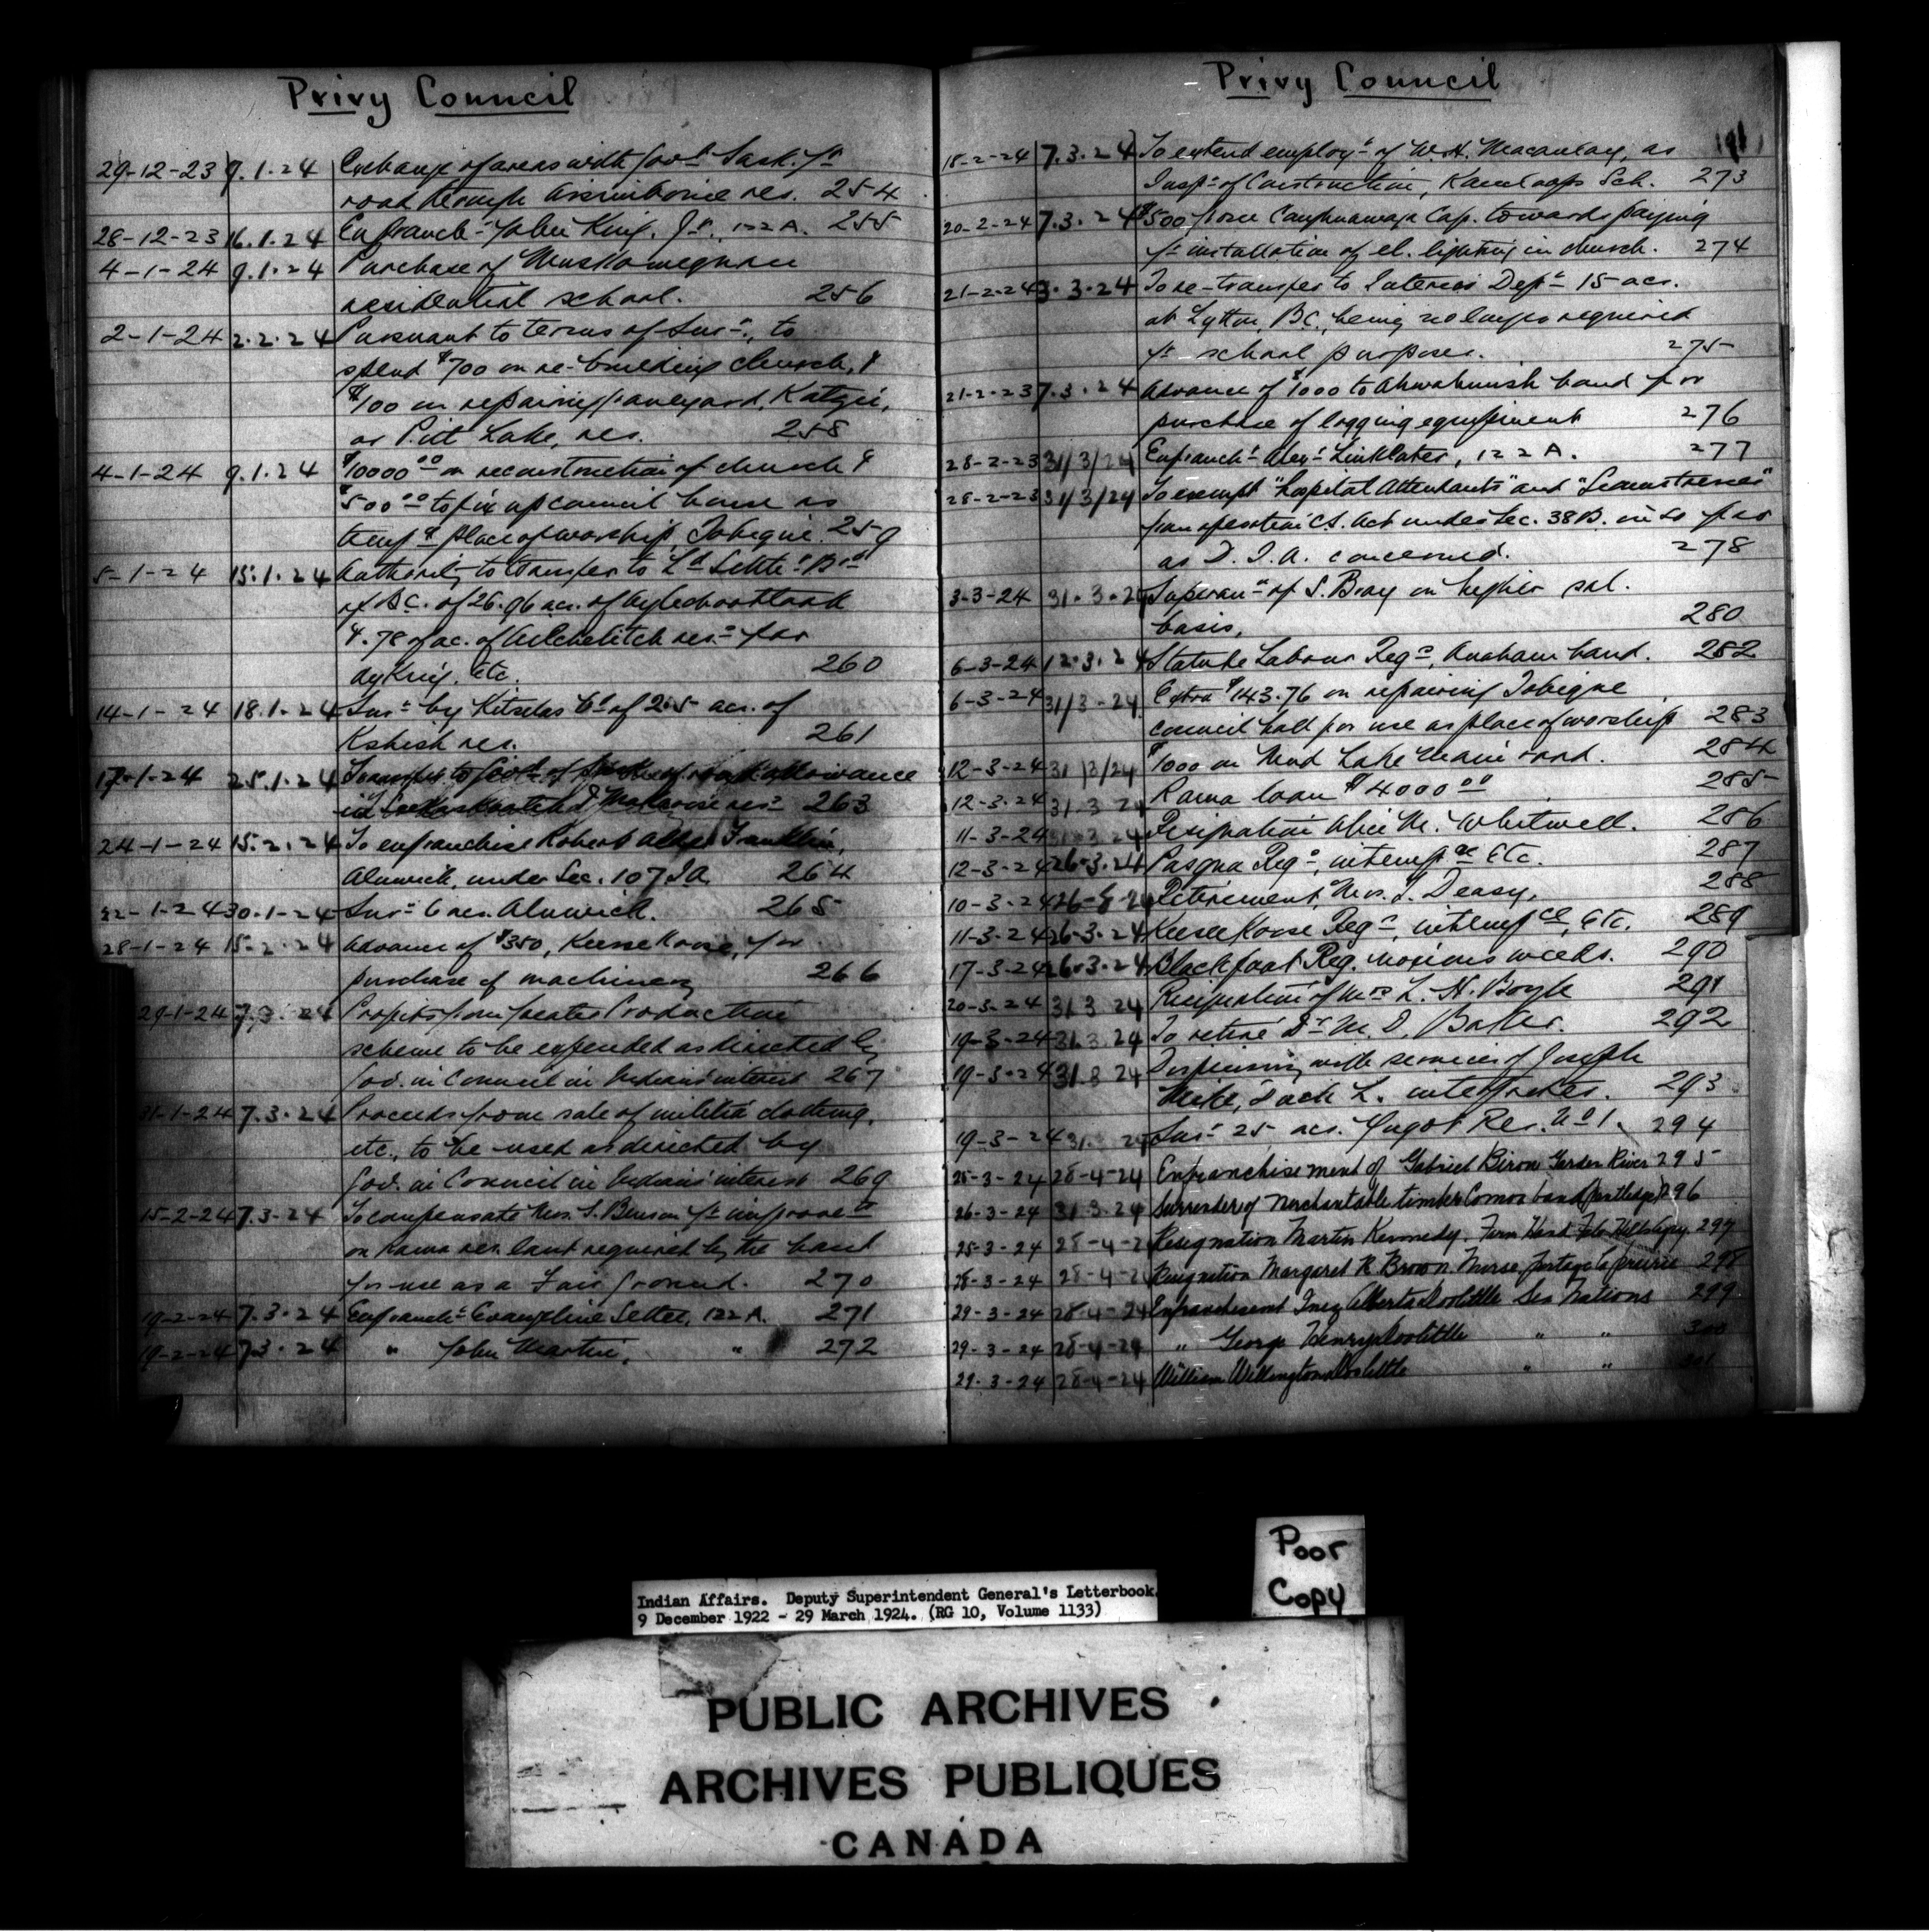 Privy Council
29-12-23 9.1.24 Exchange of areas with Govt. Sask. fr
road through Assiniboine res. 254
28-12-23 16.1.24 Enfranch- John King, Jr., 122A. 255
4-1-24 9.1.24 Purchase of Muskowequan
residential school. 256
2-1-24 2.2.24 Pursuant to terms of Surr., to
spend $700 on re-building church, &
$100 on repairing graveyard, Katzie,
or Pitt Lake, res. 258
4-1-24 9.1.24 $10000.00 on reconstruction of church &
$500.00 to fix up council house as
temp. place of worship, Tobique. 259
5-1-24 15.1.24 Authority to transfer to Ld Settlt Brd
of B.C. of 26.96 acs. of
& .78 of ac. of res. for
etc. 260
14-1-24 18.1.24 Surr by Kitselas Bd of 2.5 acs. of
Kshish res. 261
17-1-24 25.1.24 Transfer to Govt of road allowance
in res. 263
24-1-24 15.2.24 To enfranchise Robert Franklin,
Alnwick, under Sec. 107 I.A. 264
22-1-24 30.1-24 Surr 6 acs. Alnwick. 265
28-1-24 15.2.24 Advance of $350, Keesekoose, for
purchase of machinery 266
29-1-24 7.3.24 Profits from Greater Production
scheme to be expended as directed by
Gov. in Council in Indians' interest 267
31-1-24 7.3.24 Proceeds from sale of militia clothing,
etc., to be used as directed by
Gov. in Council in Indians' interest 269
15-2-24 7.3.24 To compensate Mrs. S. Benson fr improvets
on Rama res. land required by the band
for use as a Fair Ground. 270
19-2-24 7.3.24 Enfranch- Evangeline Setter, 122A. 271
19-2-24 7.3.24 " John Martin, " 272
Privy Council
18-2-24 7.3.24 To extend employt of W.H. Macaulay, as
Inspr of Construction, Kamloops Sch. 273
20-2-24 7.3.24 $500 from Caughnawaga Cap. towards paying
fr installation of el. lighting in church. 274
21-2-24 3.3.24 To re-transfer to Interior Dept 15 acs.
at Lytton, B.C., being no longer required
fr school purposes. 275
21-2-23 7.3.24 Advance of $1000 to Ahwahmish band for
purchase of logging equipment 276
28-2-23 31/3/24 Enfranch- Alexr Linklater, 122A. 277
28-2-23 31/3/24 To exempt "Hospital Attendants" and "Seamstresses"
from operation C.S. Act under Sec. 38B. in so far
as D.I.A. concerned. 278
3-3-24 31.3.24 Superann of S. Bray on higher sal.
basis. 280
6-3-24 12.3.24 Statute Labour Regns, Anaham band. 282
6-3-24 31/3-24 Extra $143.76 on repairing Tobique
council hall for use as place of worship 283
12-3-24 31/3/24 $1000 on Mud Lake main road. 284
12-3-24 31.3.24 Rama loan $4000.00 285
11-3-24 31.3.24 Resignation Alice M. Whitwell. 286
12-3-24 26.3.24 Pasqua Regns, intempce Etc. 287
10-3-24 Retirement, Mrs. T. Deasy. 288
11-3-24 26.3.24 Keesekoose Regns, intempce, Etc. 289
17-3-24 26.3.24 Blackfoot Reg. noxious weeds. 290
20-3-24 31.3.24 Resignation of Mrs L. H. Boyle 291
19-3-24 31.3.24 To retire Dr M. D. Baker. 292
19-3-24 31.3.24 Dispensing with services of Joseph
Mike, Duck L. interpreter. 293
19-3-24 Surr 25 acs. Res. No 1. 294
25-3-24 28-4-24 Enfranchisement of Gabriel Biron Garden River 295
26-3-24 31.3.24 Surrender of Merchantable timber Comox band (Puntledge) 296
25-3-24 28-4-24 Resignation Martin Kennedy, Farm Hand File Hills Agcy 297
28-3-24 28-4-24 Resignation Margaret R Brown Nurse Portage la Prairie 298
29-3-24 28-4-24 Enfranchisement Inez Alberta Doolittle Six Nations 299
29-3-24 28-4-24 " George Henry Doolittle " " 300
29-3-24 28-4-24 William Wellington Doolittle " " 301
Poor
Copy
Indian Affairs. Deputy Superintendent General's Letterbook.
9 December 1922 - 29 March 1924. (RG 10, Volume 1133)
PUBLIC ARCHIVES
ARCHIVES PUBLIQUES
CANADA